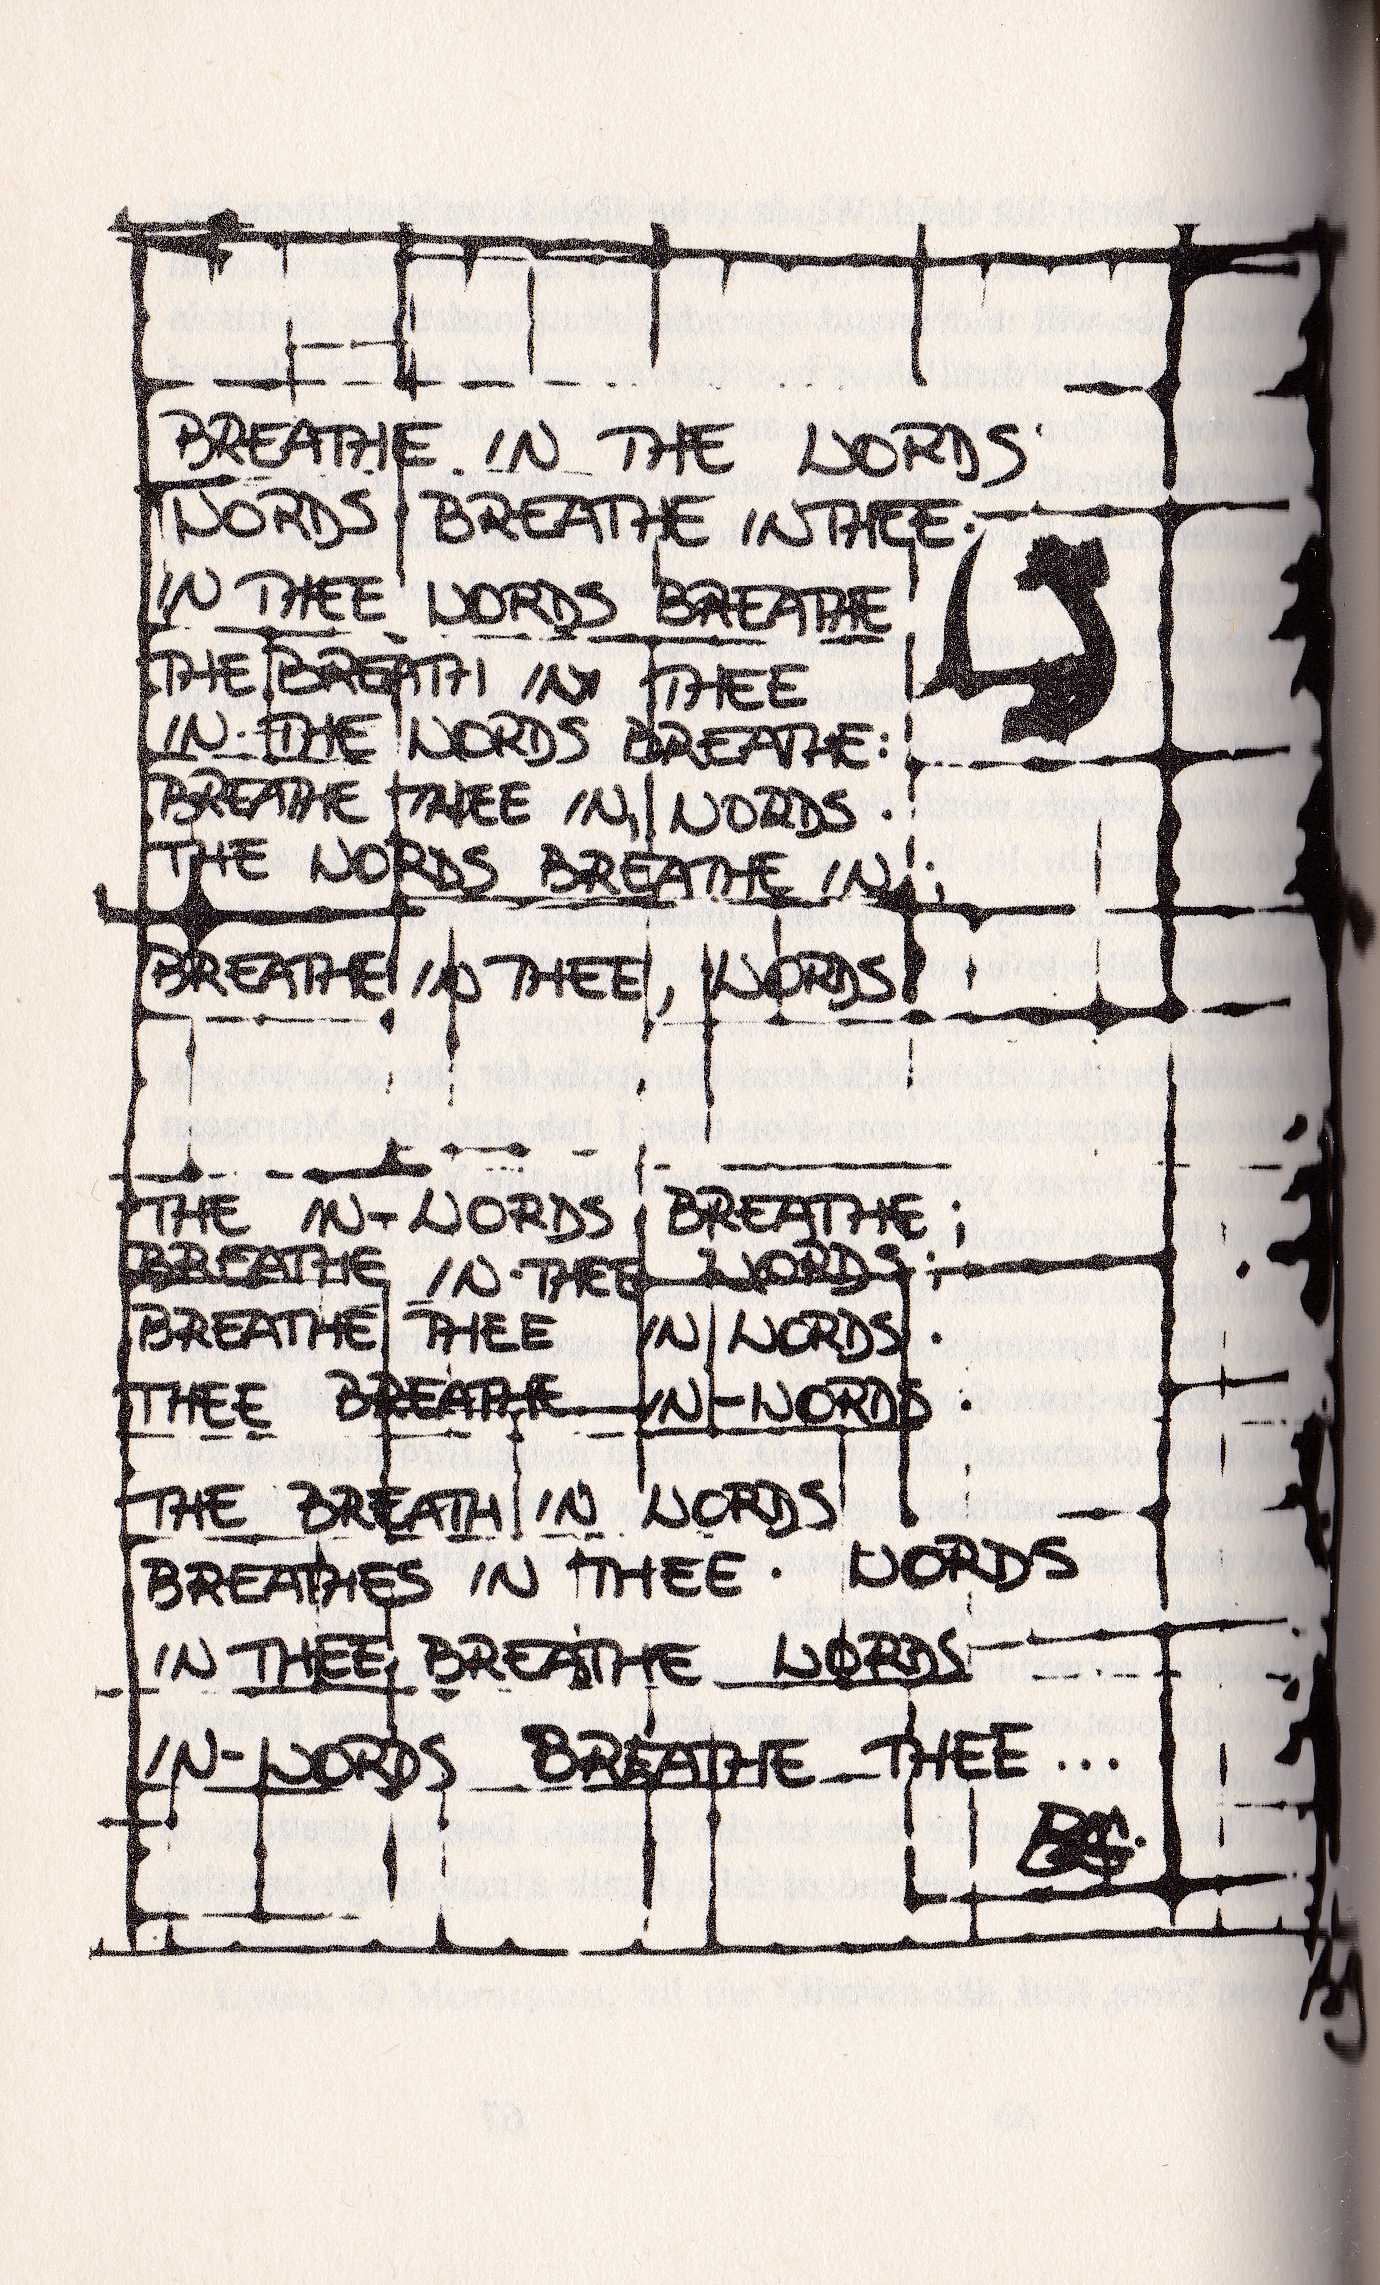 BREATHE IN THE WORDS
WORDS BREATHE IN THEE.
IN THEE WORDS BREATHE
THE BREATH IN THEE
IN·THE WORDS BREATHE:
BREATHE THEE IN, WORDS.
THE WORDS BREATHE IN;
BREATHE IN THEE, WORDS
THE IN-WORDS BREATHE;
BREATHE IN·THEE WORDS;
BREATHE THEE IN WORDS.
THEE BREATHE IN-WORDS.
THE BREATH IN WORDS
BREATHES IN THEE. WORDS
IN THEE BREATHE WORDS
IN-WORDS BREATHE THEE...